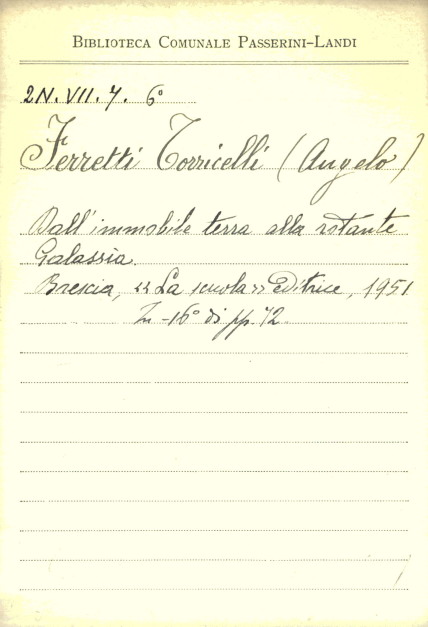 BIBLIOTECA COMUNALE PASSERINI-LANDI
2N.VII.7. 6°
Ferretti Torricelli (Angelo)
Dall'immobile terra alla rotante
Galassia.
Brescia, «La scuola» editrice, 1951
In -16° di pp. 72.